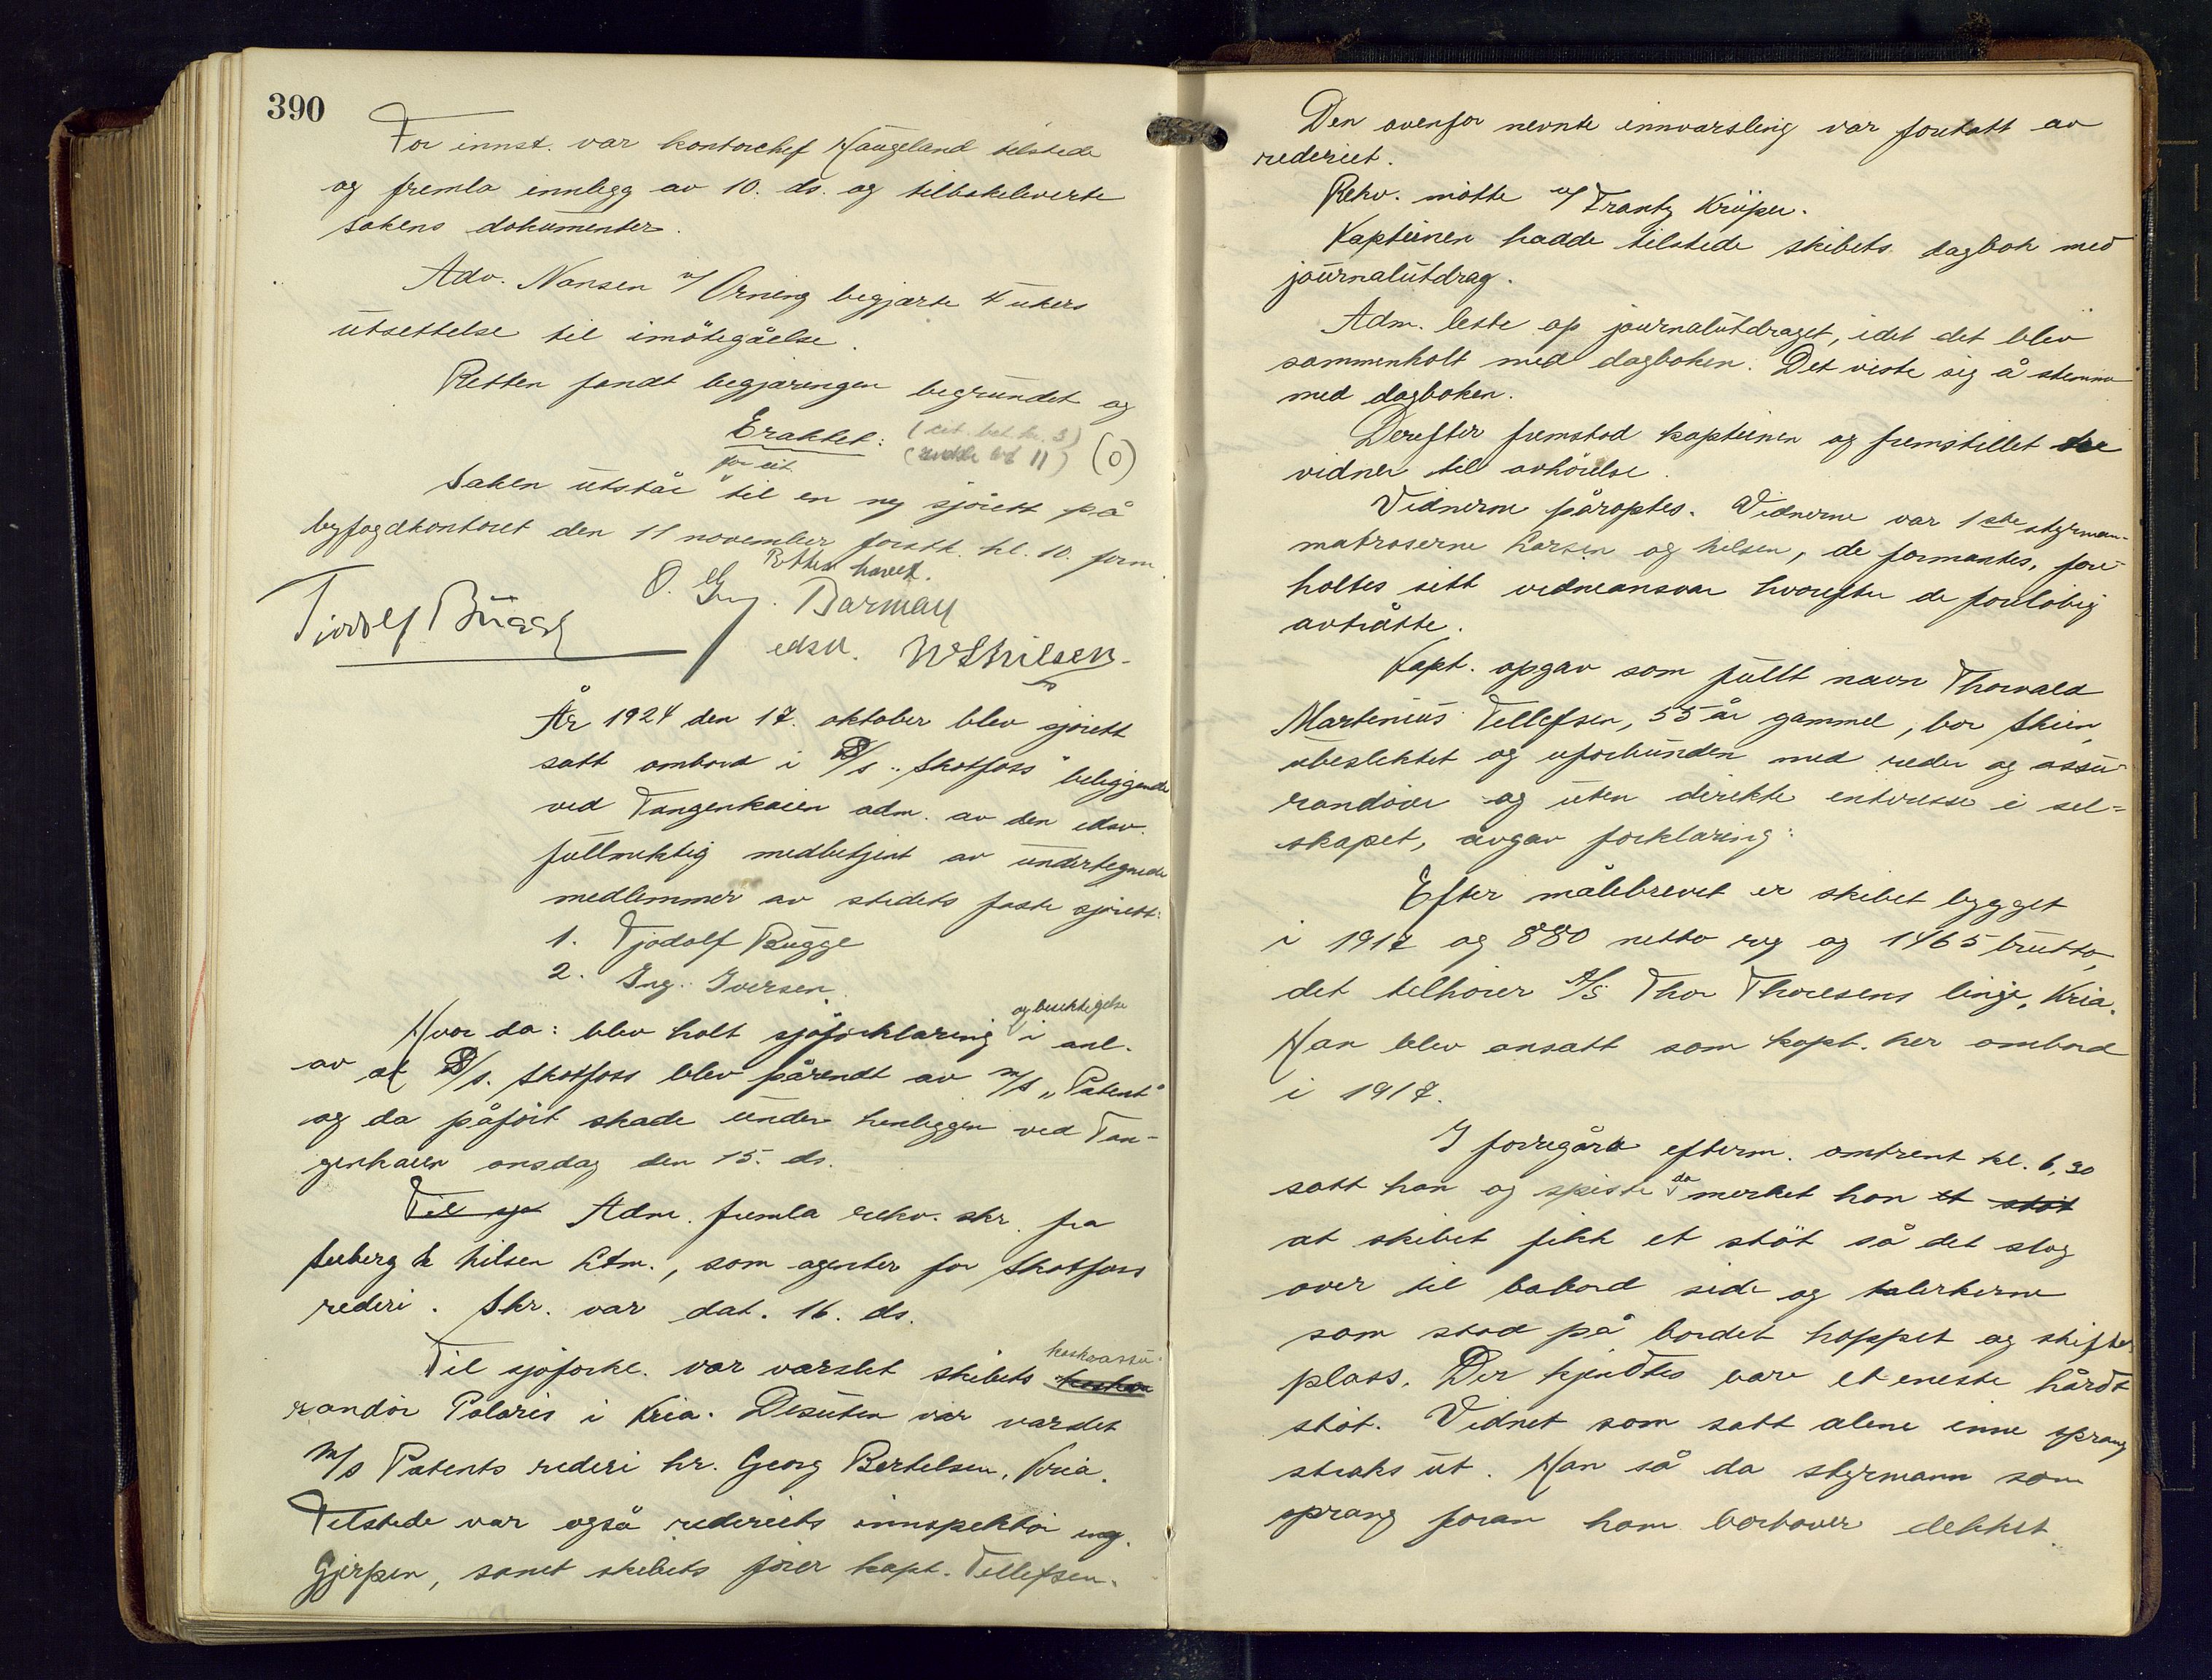 390
For innst. var kontorchef Haugeland tilstede
og fremla innlegg av 10. ds. og tilbakeleverte
sakens dokumenter.
Adv. Nansen v/ Orning begjærte 4 ukers
utsettelse til imötegåelse.
Retten fandt begjæringen begrundet og
Eraktet:
(0)
for eit.
Saken utstår til en ny sjörett på
byfogdkontoret den 11 november förstk. kl. 10. form.
Retten hævet.
O. Barmay
edsv.
År 1924 den 17. oktober blev sjörett
satt ombord i D/s "Skotfoss" beliggende
ved Tangenkaien adm. av den edsv.
fullmektig medbetjent av undertegnede
medlemmer av stedets faste sjörett:
1. Tjodolf Bugge
2. Ing. Iversen.
og besiktigelse
Hvor da: blev holt sjöforklaring i anl.
av at D/s. Skotfoss blev pårendt av m/s "Patent"
og da påfört skade under henliggen ved Tan-
genkaien onsdag den 15. ds.
Til sjö Adm. fremla rekv. skr. fra
Seeberg & Nilsen Ltm., som agenter for Skotfoss
rederi. Skr. var dat. 16. ds.
kaskoassu-
Til sjöforkl. var varslet skibets kaskoa
randör Polaris i Kria. Desuten var varslet
M/s Patents rederi hr. Georg Bertelsen, Kria.
Tilstede var også rederiets innspektör ing.
Gjerpen, samt skibets förer kapt. Tellefsen.
Den ovenfor nevnte innvarsling var foretatt av
rederiet.
Rekv. mötte v/ Frantz Kröper.
Kapteinen hadde tilstede skibets dagbok med
journalutdrag.
Adm. leste op journalutdraget, idet det blev
sammenholt med dagboken. Det viste sig å stemme
med dagboken.
Derefter fremstod kapteinen og fremstillet tre
vidner til avhörelse.
Vidnerne påroptes. Vidnerne var 1ste styrman-
matroserne Larsen og Nilsen, de formantes, fore-
holtes sitt vidneansvar hvorefter de forelöbig
avtrådte.
Kapt. opgav som fullt navn Thorvald
Martenius Tellefsen, 55 år gammel, bor Skien,
ubeslektet og uforbunden med reder og assu-
randörer og uten direkte enteresse i sel=
skapet, avgav forklaring:
Efter målebrevet er skibet bygget
i 1917 og 880 netto reg og 1465 brutto,
det tilhörer A/S Thor Thoresens linje, Kria.
Han blev ansatt som kapt. her ombord
i 1917.
I forregårs efterm. omtrent kl. 6,30
satt han og spiste da merket han et stöt
at skibet fikk et stöt så det slog
over til babord side og talerkerne
som stod på bordet hoppet og skiftet
plass. Der kjendtes bare et eneste hårdt
stöt. Vidnet som satt alene inne sprang
straks ut. Han så da styrmann som
sprang foran ham bortover dekket.